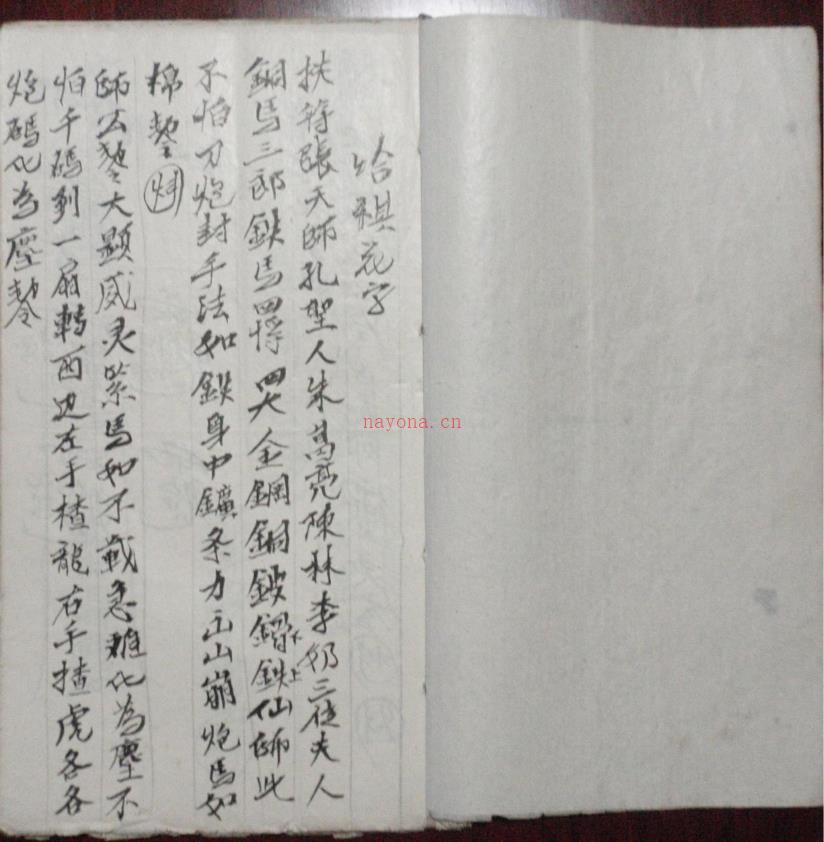 給棋花字
扶待張天師孔聖人朱葛亮陳林李奶三位夫人
銅馬三郎鉄馬四将四大金鋼銅鈸鐂下鉄上仙師此
不怕刀炮封手法如鉄身中鑛条力玉山崩炮馬如
棉𠡠
師公𠡠大顯威灵紫馬如不戰急难化為塵不
怕千碼到一扇轉西边左手揸龍右手揸虎各各
炮碼化為塵𠡠
nayona.cn